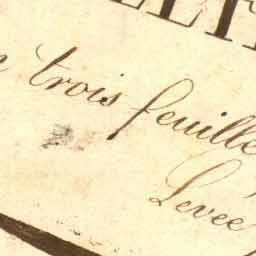 trois feuille
Levée